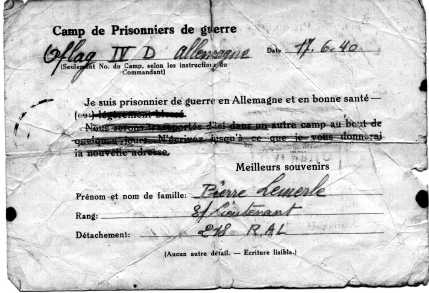 Camp de Prisonniers de guerre
Oflag IV D allemagne Date 17.6.40
(Seulement No. du Camp, selon les instructions du
Commandant)
Je suis prisonnier de guerre en Allemagne et en bonne santé —
(ou) légèrement blessé.
Nous serons transportés d'ici dans un autre camp au bout de
quelques jours. N'écrivez jusqu'à ce que je vous donnerai
la nouvelle adresse.
Meilleurs souvenirs
Prénom et nom de famille: Pierre Lemerle
Rang: S/Lieutenant
Détachement: 218 R.A.L
(Aucun autre détail. — Ecriture lisible.)